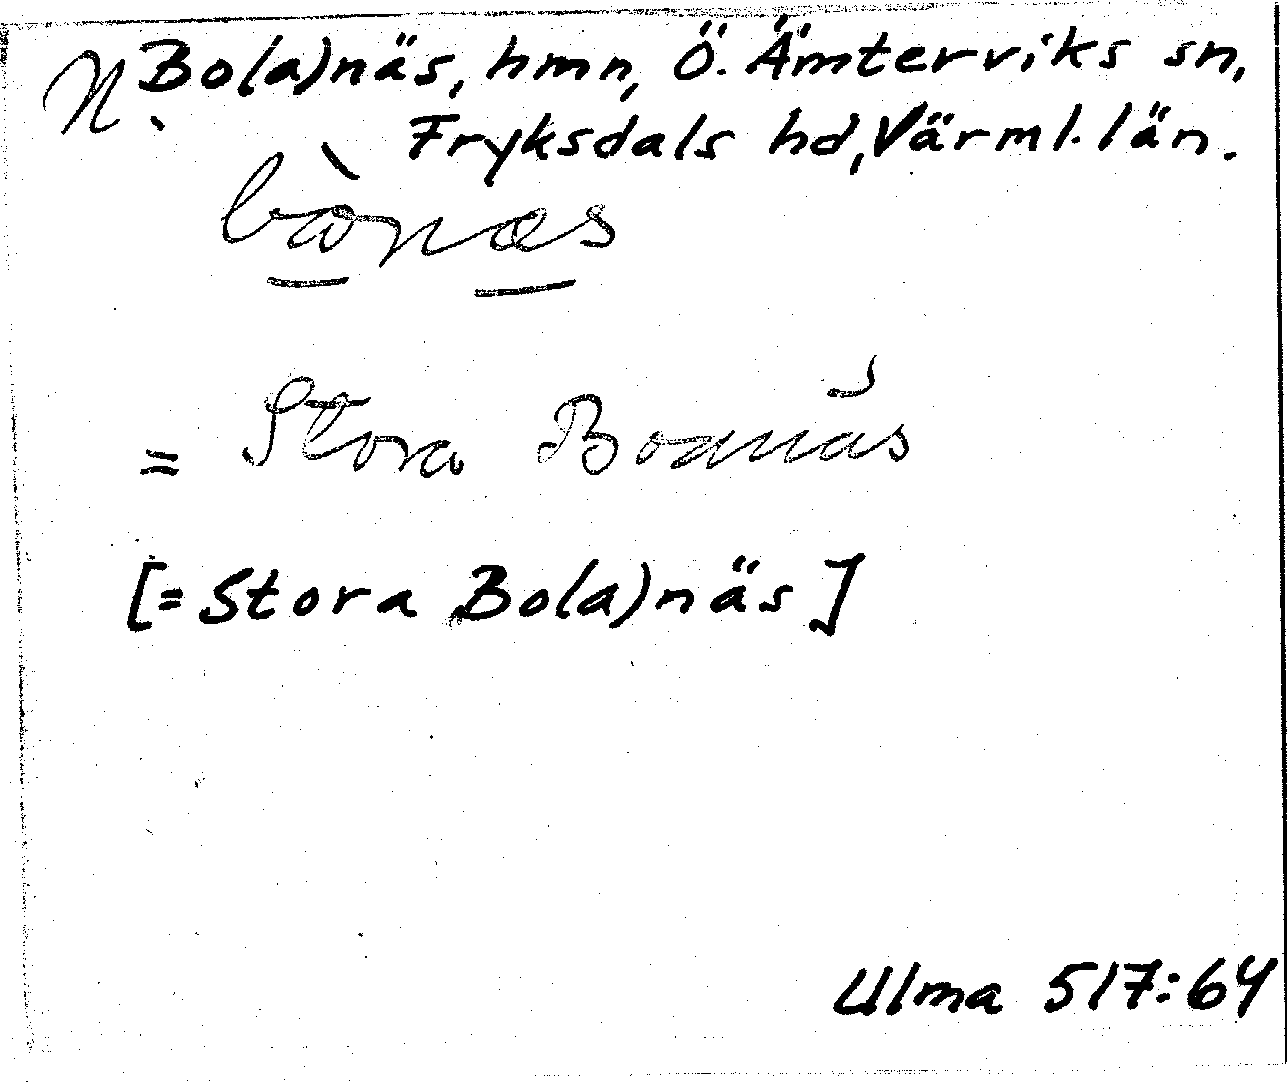 N. Bo(a)näs, hmn, Ö. Ämterviks sn,
Fryksdals hd, Värml. län.
= Stora Boanäs
[= Stora Bo(a)näs]
Ulma 517:64